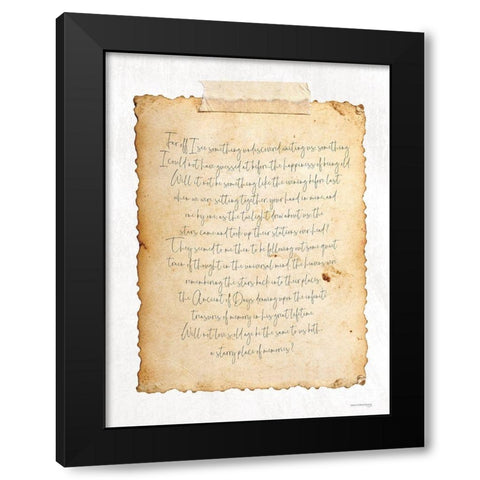 Far off I see something undiscovered waiting us, something
I could not have guessed at before, the happiness of being old.
Will it not be something like the evening before last
when we were sitting together, your hand in mine, and
one by one, as the twilight drew about us, the
stars came and took up their stations overhead?
They seemed to me then to be following out some quiet
train of thought in the universal mind; the heavens were
remembering the stars back into their places:
the Ancient of Days drawing upon the infinite
treasures of memory in his great lifetime.
Will not love's old age be the same to us both,
a starry place of memories?